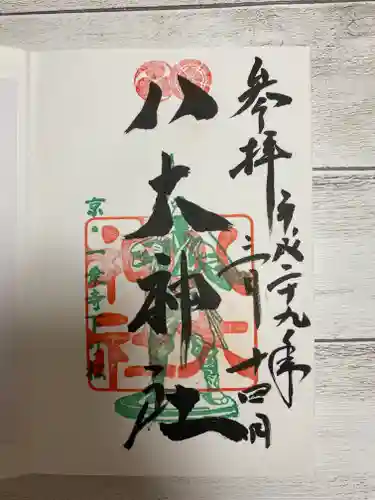 参拝 平成二十九年
十四日
八大神社
京・一乗寺下り松